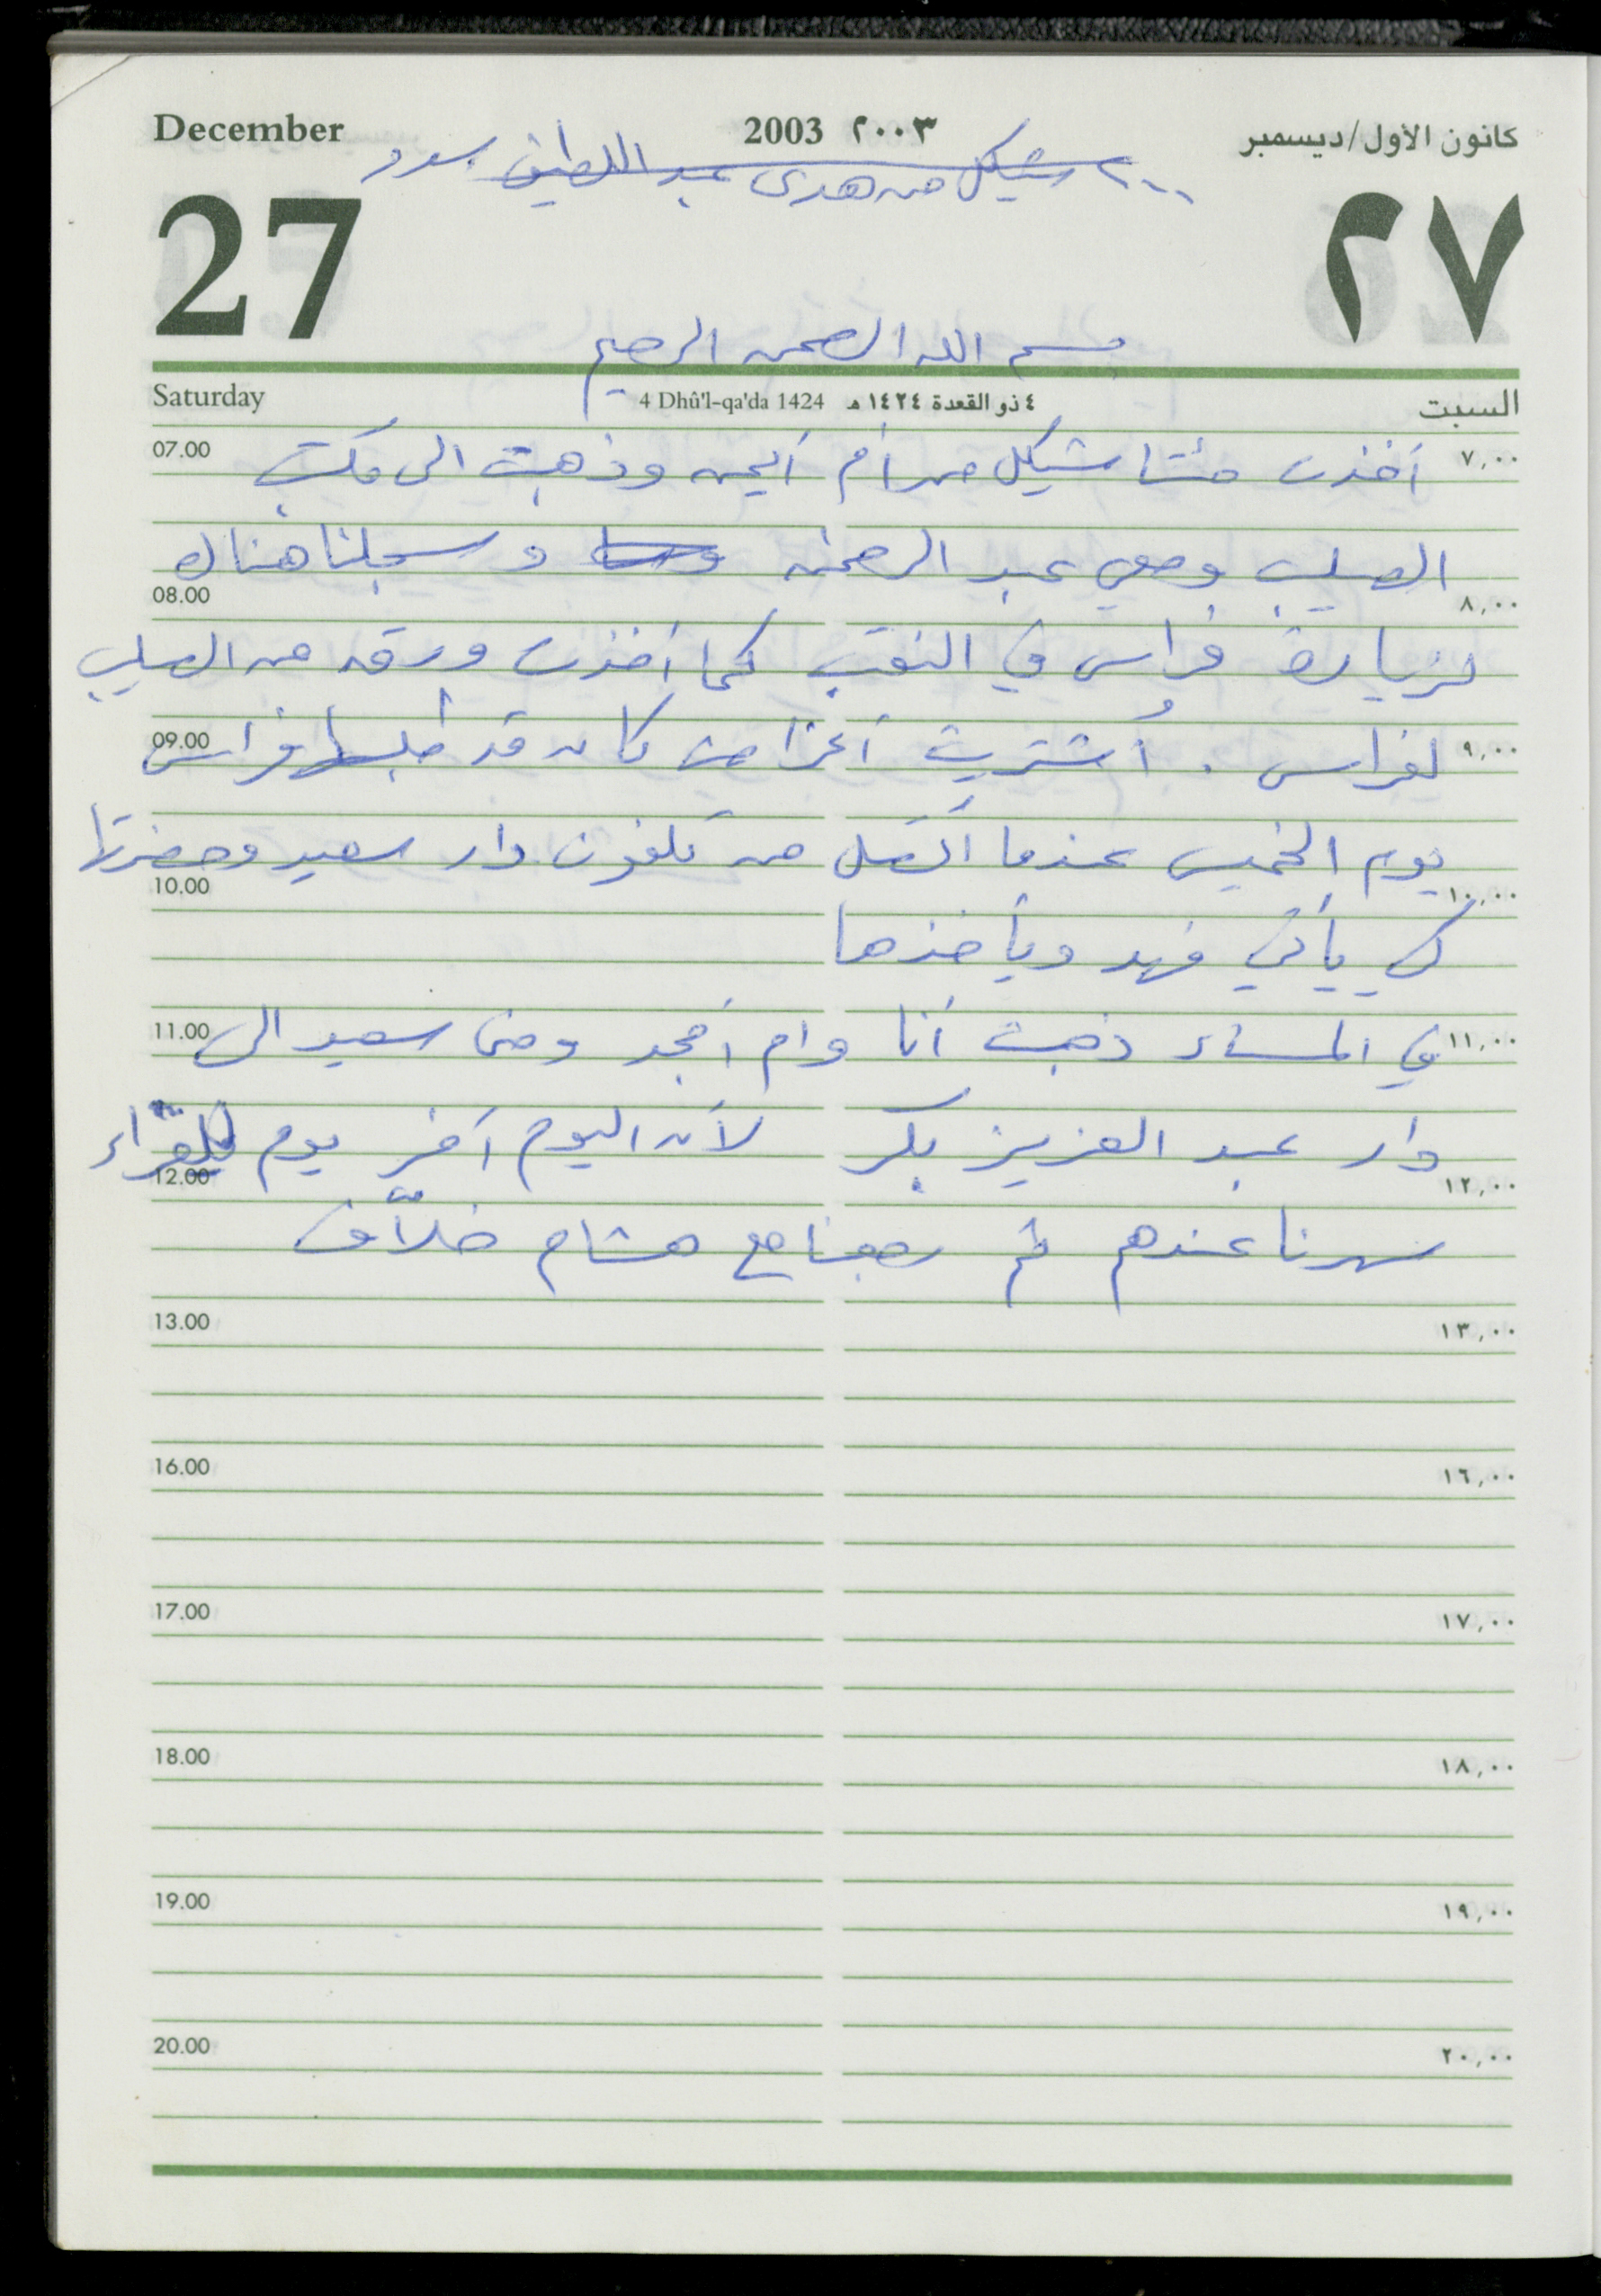 December 2003 ٢٠٠٣ كانون الأول/ديسمبر
٢٠٠ شيكل من هدى عبد اللطيف سدد
27 ٢٧
بسم الله الرحمن الرحيم
Saturday 4 Dhû'l-qa'da 1424 ٤ ذو القعدة ١٤٢٤ هـ السبت
07.00 أخذت مئتا شيكل من أم أيمن وذهبت الى مكتب ٧,٠٠
الصليب ومعي عبد الرحمن وسجلنا هناك
08.00 ٨,٠٠
لزيارة فراس في النقب كما أخذت ورقة من الصليب
09.00 لفراس . أشتريت أغراض كان قد طلبها فراس ٩,٠٠
يوم الخميس عندما اتصل من تلفون دار سعيد وحضرتها
10.00 ١٠,٠٠
كي يأتي فهد ويأخذها
11.00 في المساء ذهبت أنا وام أمجد ومنى سعيد الى ١١,٠٠
دار عبد العزيز بكر لأن اليوم آخر يوم للعزاء
12.00 ١٢,٠٠
سهرنا عندهم ثم رجعنا مع هشام خلاّف
13.00 ١٣,٠٠
16.00 ١٦,٠٠
17.00 ١٧,٠٠
18.00 ١٨,٠٠
19.00 ١٩,٠٠
20.00 ٢٠,٠٠